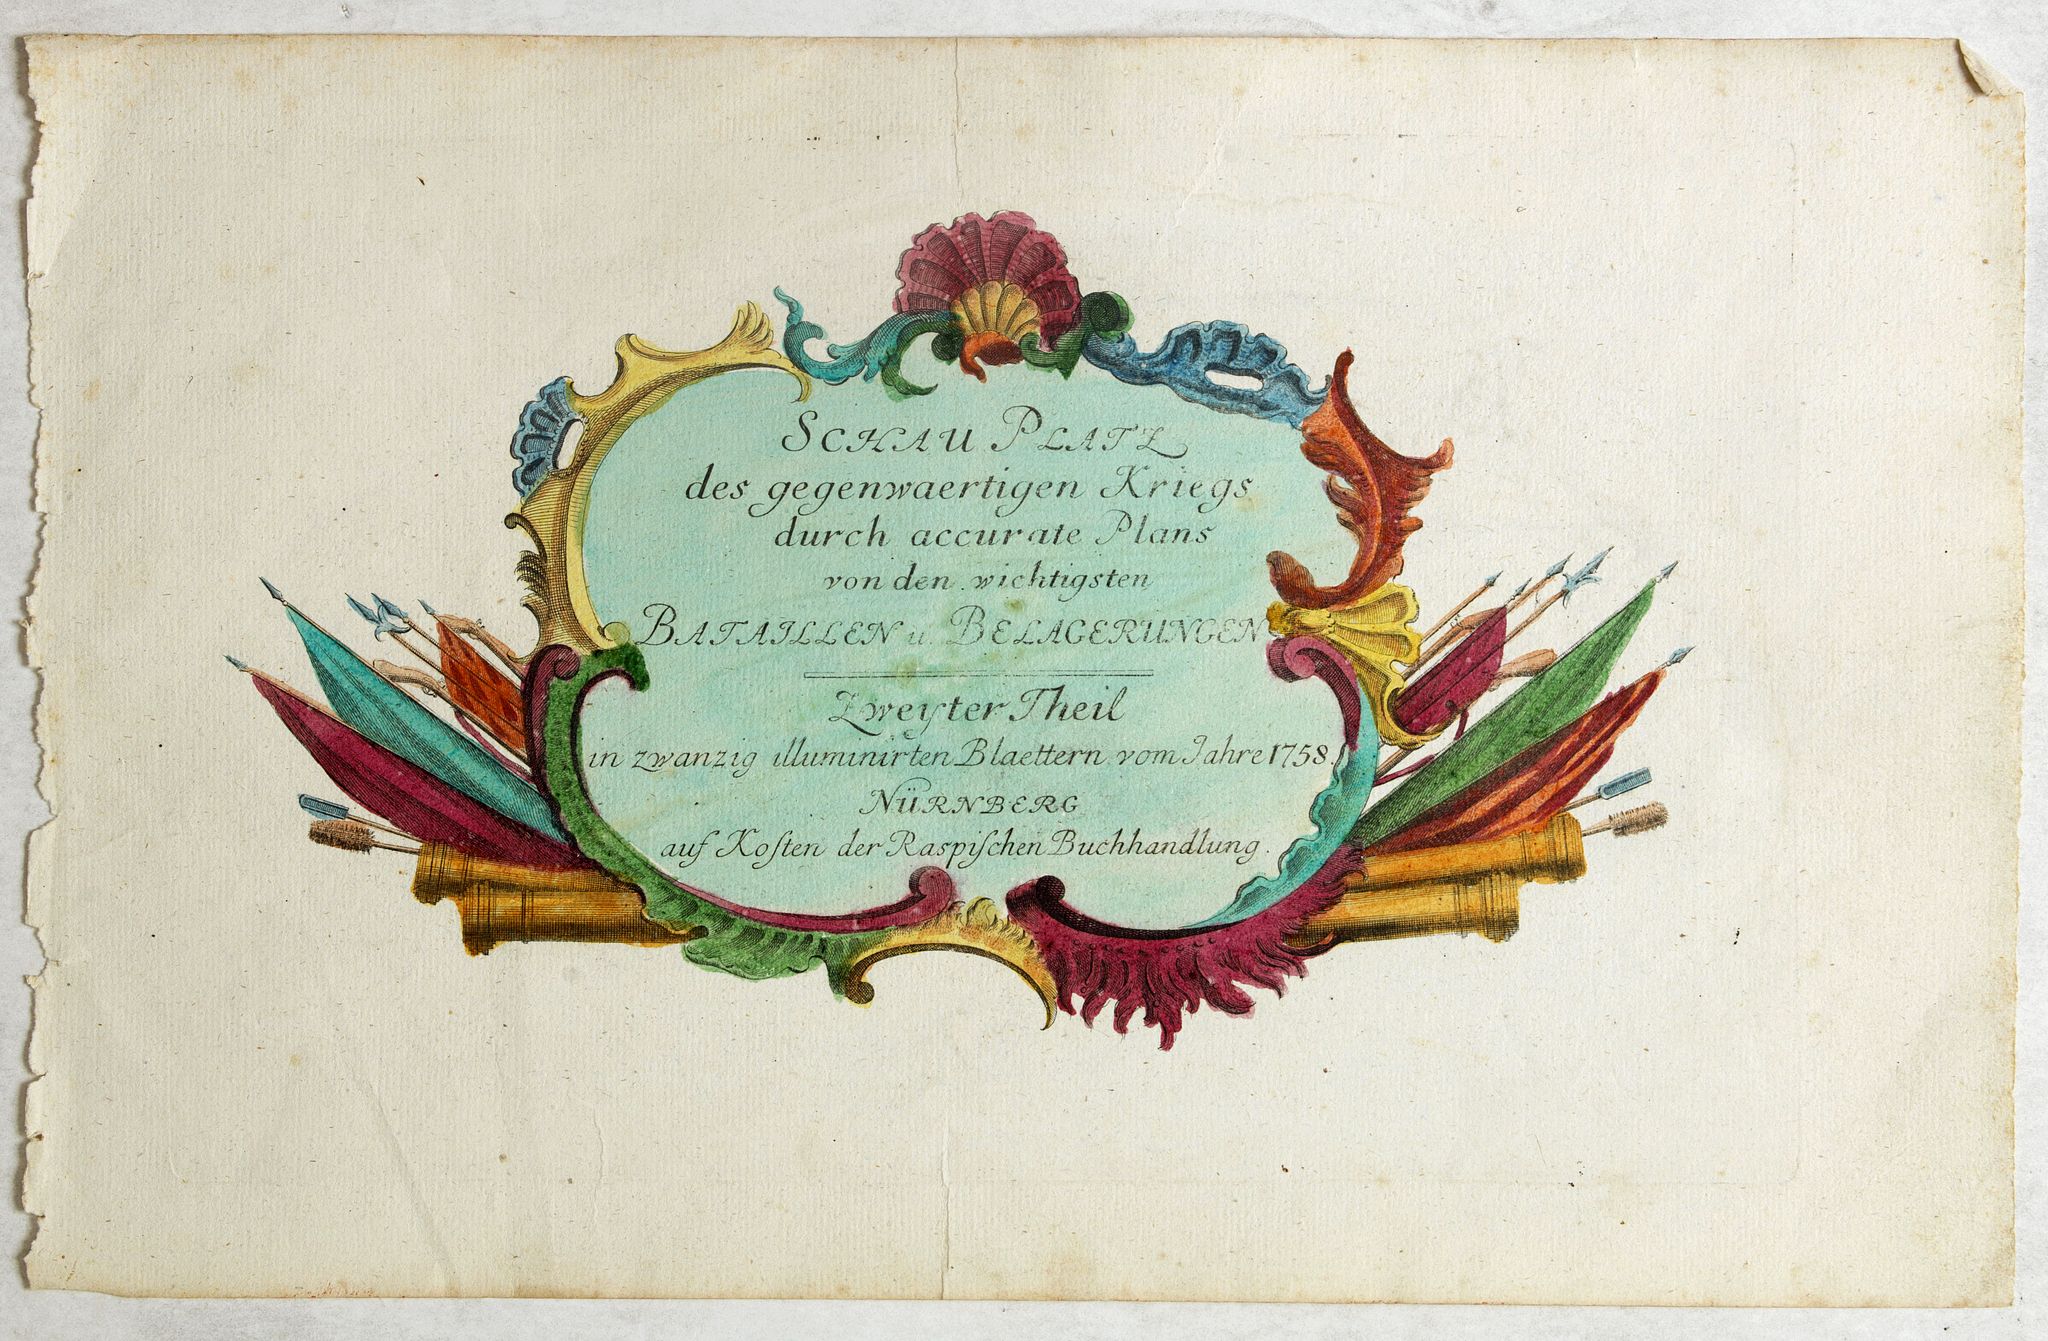 SCHAU PLATZ
des gegenwaertigen Kriegs
durch accurate Plans
von den wichtigsten
BATAILLEN u. BELAGERUNGEN
Zweyter Theil
in zwanzig illuminirten Blaettern vom Jahre 1758.
NÜRNBERG
auf Koſten der Raspiſchen Buchhandlung.